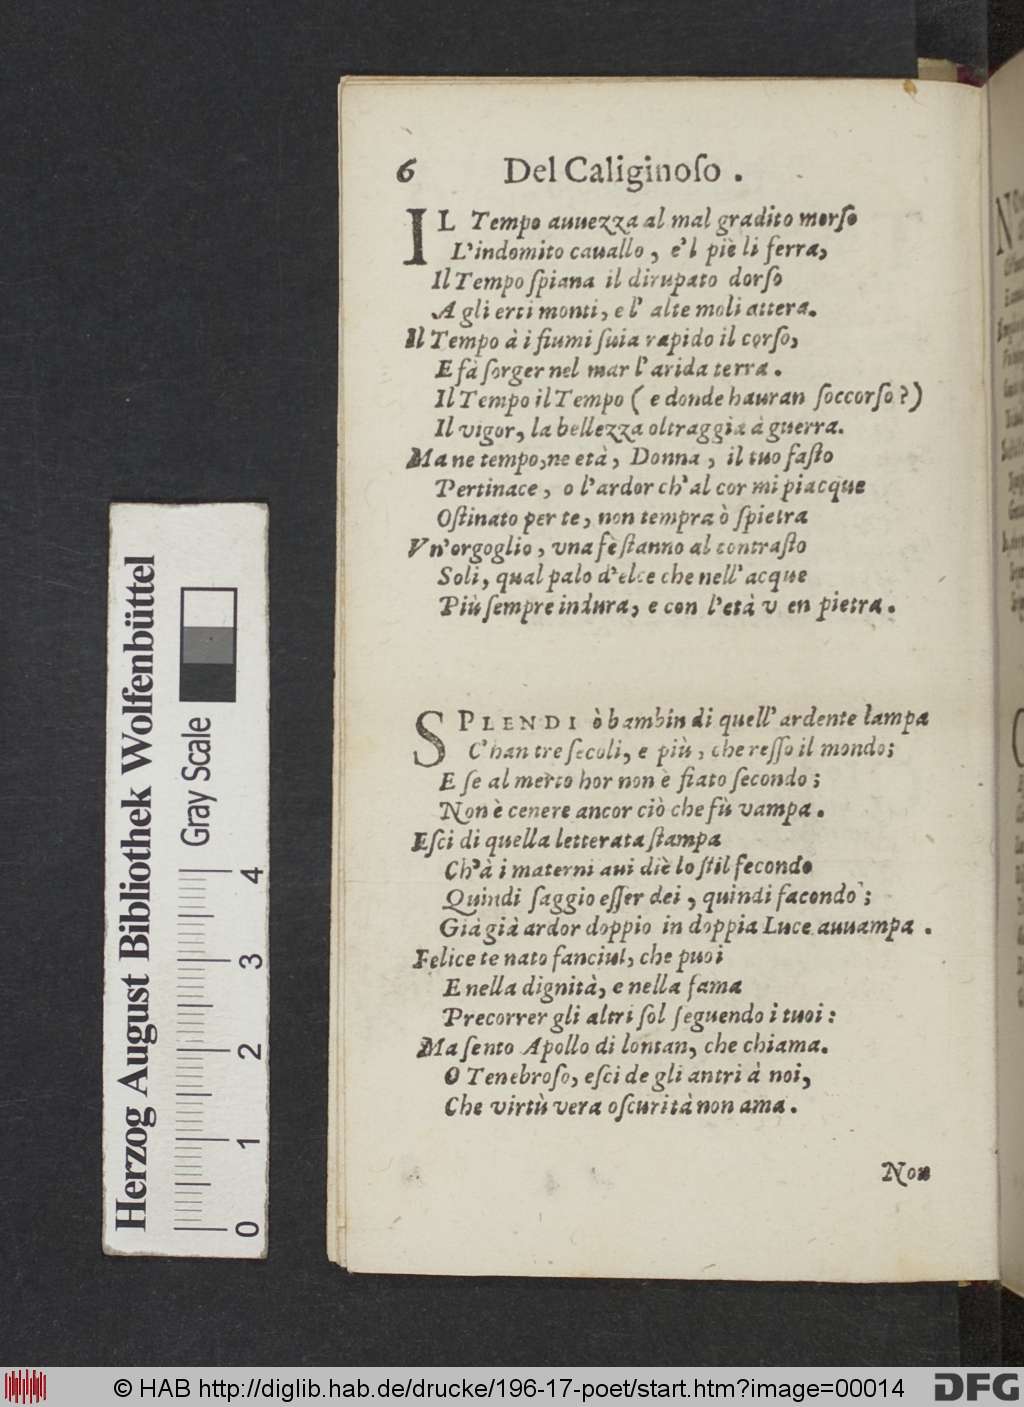 6 Del Caliginoſo .
IL Tempo auuezza al mal gradito morſo
L'indomito cauallo , e'l piè li ferra,
Il Tempo ſpiana il dirupato dorſo
A gli erti monti, e l' alte moli atterra.
Il Tempo à i fiumi ſuia rapido il corſo,
E fà ſorger nel mar l'arida terra .
Il Tempo il Tempo ( e donde hauran ſoccorſo ?)
Il vigor, la bellezza oltraggia à guerra.
Ma ne tempo,ne età , Donna , il tuo faſto
Pertinace , o l'ardor ch'al cor mi piacque
Oſtinato per te, non tempra ò ſpietra
Vn'orgoglio , vna fè ſtanno al contraſto
Soli, qual palo d'elce che nell'acque
Più ſempre indura, e con l'età v en pietra .
SPLENDI ò bambin di quell'ardente lampa
C'han tre ſecoli, e più , che reſſo il mondo;
E ſe al merto hor non è fiato ſecondo ;
Non è cenere ancor ciò che fù vampa .
Eſci di quella letterata ſtampa
Ch'à i materni aui diè lo ſtil fecondo
Quindi ſaggio eſſer dei , quindi facondo ;
Già già ardor doppio in doppia Luce auuampa .
Felice te nato fanciul, che puoi
E nella dignità, e nella fama
Precorrer gli altri ſol ſeguendo i tuoi :
Ma ſento Apollo di lontan, che chiama.
O Tenebroſo, eſci de gli antri à noi,
Che virtù vera oſcurità non ama .
Non
Herzog August Bibliothek Wolfenbüttel
Gray Scale
0 1 2 3 4
© HAB http://diglib.hab.de/drucke/196-17-poet/start.htm?image=00014
DFG